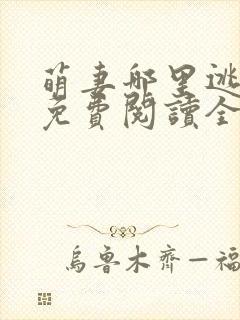 萌妻哪里逃
免費閱讀全
烏魯木齊—福